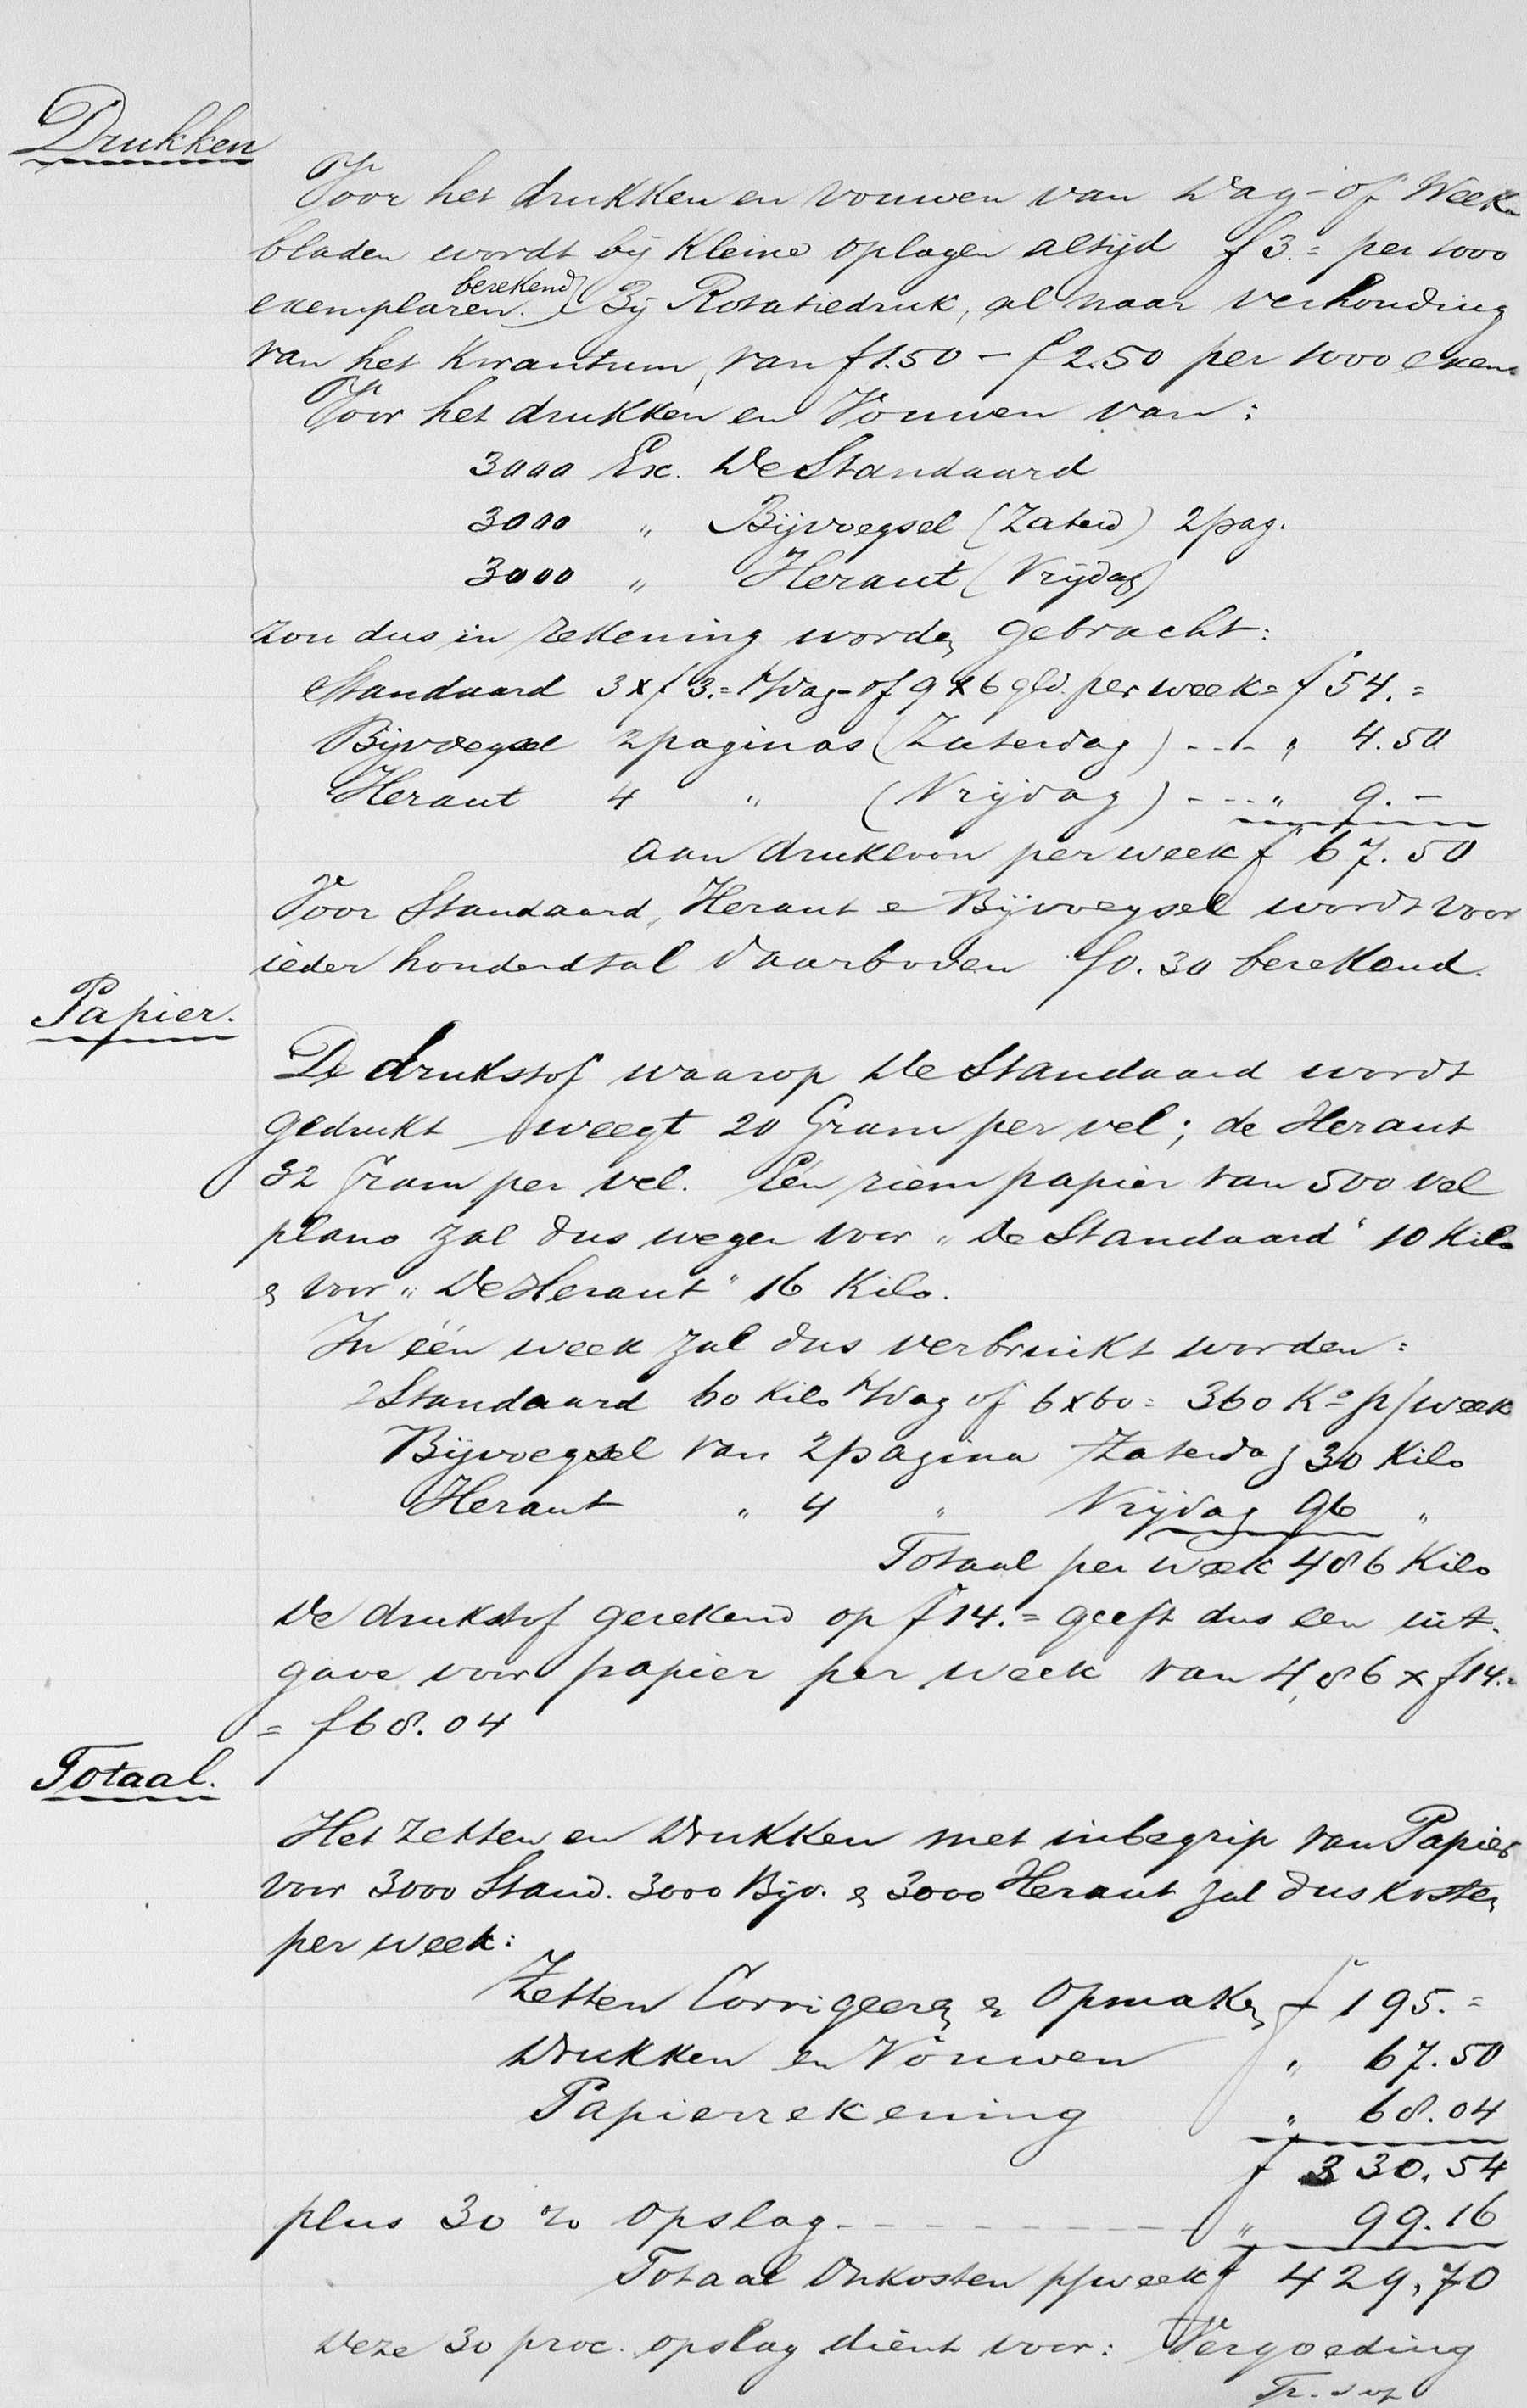 Drukken
Voor het drukken en vouwen van Dag- of Week-
bladen wordt bij Kleine oplagen altijd f 3.= per 1000
exemplaren berekend. Bij Rotatiedruk, al naar verhouding
van het Kwantum, van f 1.50 - f 2.50 per 1000 exem.
Voor het drukken en Vouwen van:
3000 Ex. De Standaard
3000 " Bijvoegsel (Zaterd) 2 pag.
3000 " Heraut (Vrijdag)
zou dus in rekening worden gebracht:
Standaard 3 x f 3.= p/dag of 9 x 6 gld. per week = f 54.=
Bijvoegsel 2 paginas (Zaterdag) - - - " 4.50
Heraut 4 " (Vrijdag) - - - " 9.-
aan drukloon per week f 67.50
Voor Standaard, Heraut en Bijvoegsel wordt voor
ieder honderdtal daarboven f 0.30 berekend.
Papier.
De drukstof waarop De Standaard wordt
gedrukt weegt 20 Gram per vel; de Heraut
32 Gram per vel. Eén riem papier van 500 vel
plano zal dus wegen voor "De Standaard" 10 Kilo
& voor "De Heraut" 16 Kilo.
In één week zal dus verbruikt worden:
Standaard 60 Kilo p/dag of 6 x 60 = 360 Ko p/week
Bijvoegsel van 2 pagina Zaterdag 30 Kilo
Heraut " 4 " Vrijdag 96 "
Totaal per week 486 Kilo
De drukstof gerekend op f 14.= geeft dus een uit-
gave voor papier per week van 4,86 x f 14.=
= f 68.04
Totaal.
Het zetten en Drukken met inbegrip van Papier
voor 3000 Stand. 3000 Bijv. & 3000 Heraut zal dus kosten
per week:
Zetten Corrigeeren & Opmaken f 195.=
Drukken en Vouwen " 67.50
Papierrekening " 68.04
f 330.54
plus 30 % opslag - - - - - - - - - " 99.16
Totaal Onkosten p/week f 429,70
Deze 30 proc. opslag dient voor: Vergoeding